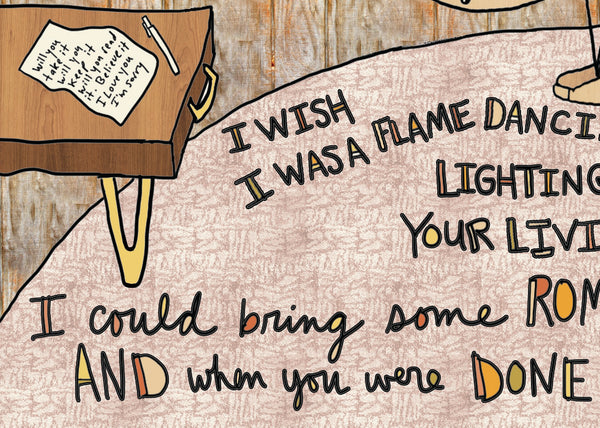 Will you
take it
will you
keep it
will you read
it. Believe it
I Love you
I'm sorry
I WISH
I WAS A FLAME DANCI
LIGHTING
YOUR LIVI
I could bring some ROM
AND when you were DONE